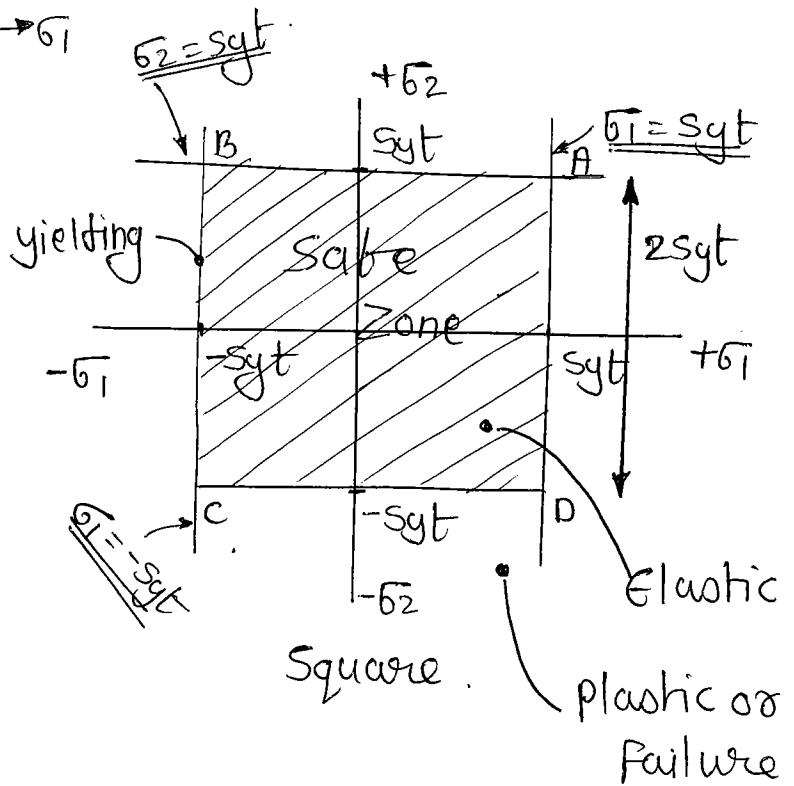 →σ1
σ2 = Syt
+σ2
σ1 = Syt
B
Syt
A
yielding
Safe
2Syt
Zone
-σ1
-Syt
Syt
+σ1
C
-Syt
D
σ1 = -Syt
Elastic
-σ2
Square.
Plastic or
Failure